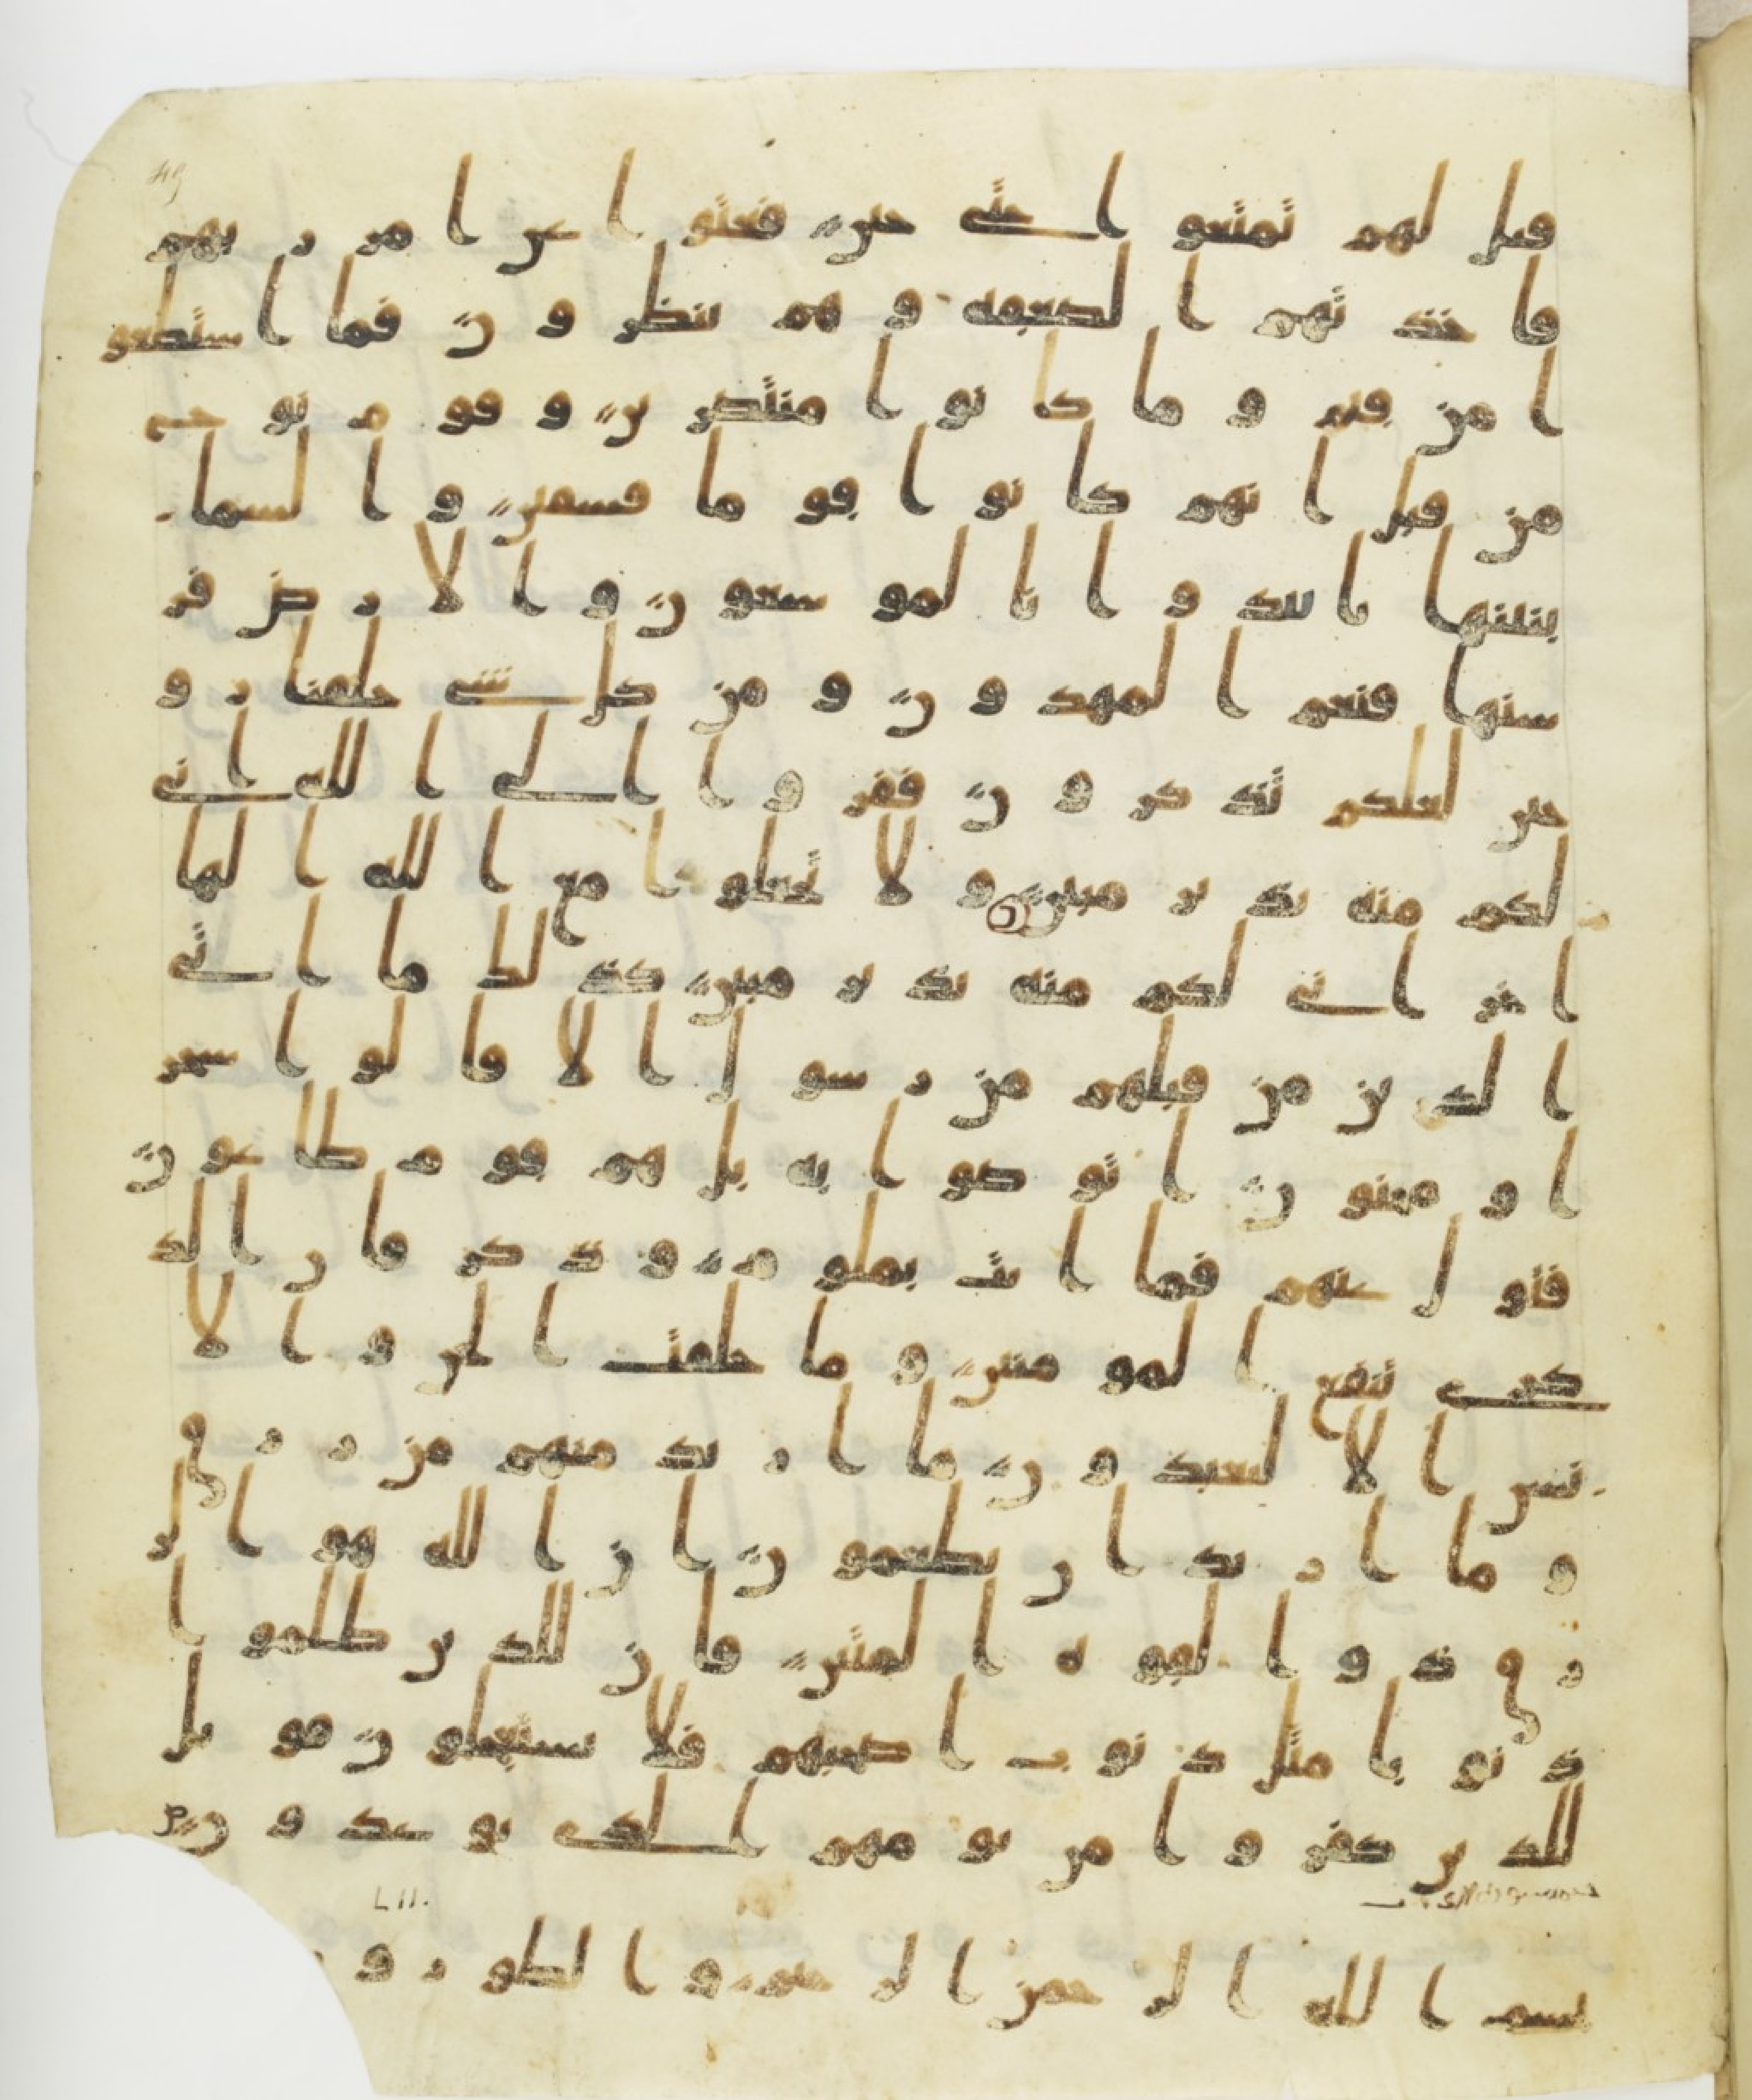 49
قيل لهم تمتعوا حتى حين فعتوا عن امر ربهم
فاخذتهم الصعقه وهم ينظرون فما استطعو
ا من قيم وما كانوا منتصرين وقوم نوح
من قبل انهم كانوا قوما فسقين والسما
بنينها باييد وانا لموسعون والارض فر
شنها فنعم المهدون ومن كل شيء خلقنا زو
جين لعلكم تذكرون ففروا الى الله اني
لكم منه نذير مبين ولا تجعلوا مع الله الها
اخر اني لكم منه نذير مبين كذلك ما اتى
الذين من قبلهم من رسول الا قالوا سحر
او مجنون اتوصوا به بل هم قوم طاغون
فتول عنهم فما انت بملوم وذكر فان الذ
كرى تنفع المومنين وما خلقت الجن والا
نس الا ليعبدون ما اريد منهم من رزق
وما اريد ان يطعمون ان الله هو الر
زق ذو القوه المتين فان للذين ظلموا
ذنوبا مثل ذنوب اصحبهم فلا يستعجلون فويل
للذين كفروا من يومهم الذي يوعدون
LII.
بسم الله الرحمن الرحيم والطور و